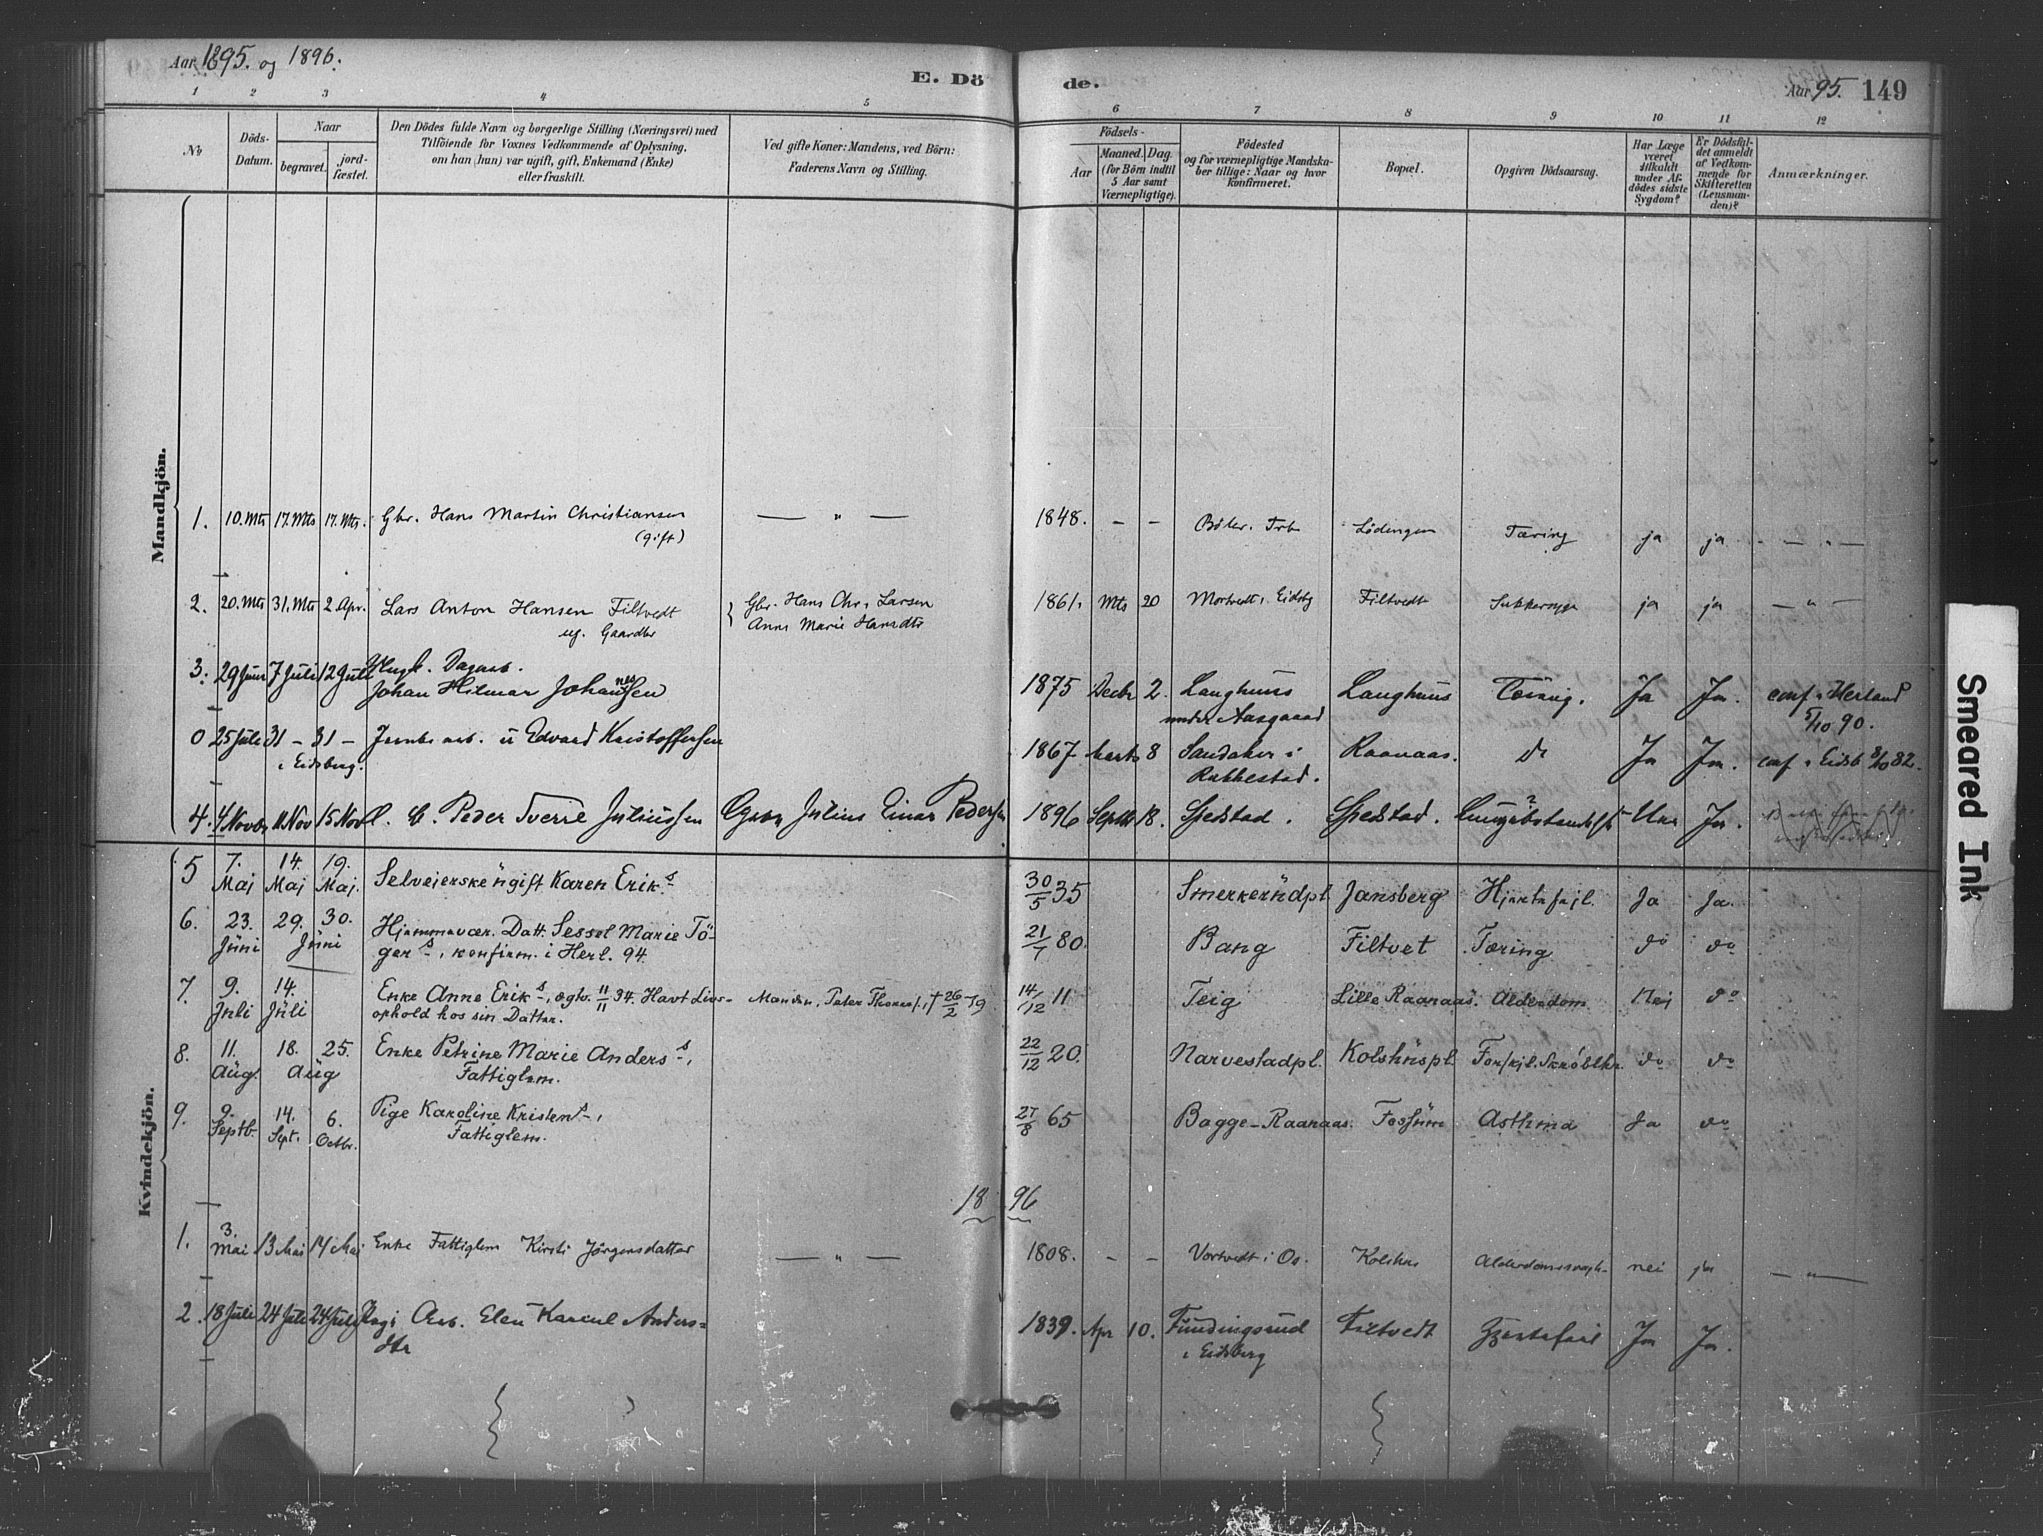 Aar 1895. og 1896.
E. Dö
de.
Aar 95. 149
1 2 3 4 5 6 7 8 9 10 11 12
No
Döds-
Datum.
Naar
begravet.
jord-
fæstet.
Den Dödes fulde Navn og borgerlige Stilling (Næringsvei) med
Tilföiende for Voxnes Vedkommende af Oplysning,
om han (hun) var ugift, gift, Enkemand (Enke)
eller fraskilt.
Ved gifte Koner: Mandens, ved Börn:
Faderens Navn og Stilling.
Födsels-
Aar
Maaned. Dag.
(for Börn indtil
5 Aar samt
Værnepligtige).
Födested
og for værnepligtige Mandska-
ber tillige: Naar og hvor
konfirmeret.
Bopæl.
Opgiven Dödsaarsag.
Har Læge
været
tilkaldt
under Af-
dödes sidste
Sygdom?
Er Dödsfal-
det anmeldt
af Vedkom-
mende for
Skifteretten
(Lensman-
den)?
Anmærkninger.
Mandkjön.
1. 10. Mts 17. Mts 17. Mts. Gbr. Hans Martin Christiansen — " — 1848. - - Böler. Trb Lödengen Tæring ja ja — " —
(gift)
2. 20. Mts 31. Mts 2. Apr. Lars Anton Hansen Filtvedt Gbr. Hans Chr. Larsen 1861. Mts 20 Mortvedt i Eidsbg Filtvedt Sukkersyge ja ja — " —
ug. Gaardbr Anne Marie Hansdtr
3. 29 Juni 7 Juli 12 Juli Ungk. Dagarb.
Johan Hilmar Johannesen 1875 Decbr 2. Langhuus Langhuus Tæring. Ja Ja. conf. i Herland
under Aasgaard 5/10 90.
0 25 Juli 31 - 31 - Jernb. arb. u Edvard Kristoffersen 1867 Marts 8 Sandaker i Raanaas. do Ja Ja. conf. i Eidsb 8/10 82.
i Eidsberg. Rakkestad.
4. 4 Novbr 11 Nov 15 Nov Peder Sverre Juliussen Gaardbr Julius Einar Pedersen 1896 Septbr 18. Spedstad. Spedstad. Ja.
Kvindekjön.
5 7. Maj 14. Maj 19. Maj. Selveierske ugift Karen Eriks 30/5 35 Smerkerudpl. Jansberg Hjertefejl. Ja Ja.
6. 23. Juni 29. 30. Juni Hjemmevær. Datt. Sessel Marie Tö- 21/7 80. Bang Filtvet Tæring do do
gers, konfirm. i Herl. 94.
7. 9. Juli 14. Juli Enke Anne Eriks, ægtv. 11/11 34. Havt Livs- Manden, Peter Thoresf., † 26/2 79 14/12 11 Teig Lille Raanaas. Alderdom Nei do
ophold hos sin Datter.
8. 11. Aug. 18. 25. Aug Enke Petrine Marie Anders, 22/12 20. Narvestadpl. Kolshuspl. do do
Fattiglem.
9. 9. Septb. 14. Sept. 6. Octbr. Pige Karoline Kristens, 27/8 65 Bagge-Raanaas. Fossum Asthma Ja do
Fattiglem.
18 96
1. 3. Mai 13 Mai 14 Mai Enke Fattiglem Kirsti Jörgensdatter — " — 1808. - - Vortvedt i Os. Kolshus Alderdomssvagh. nei ja — " —
2. 18 Juli 24 Juli 24 Juli Arb. Elen Karine Anders- 1839. Apr 10. Fundingsrud Filtvedt Hjertefeil Ja Ja.
dtr i Eidsberg
Smeared Ink